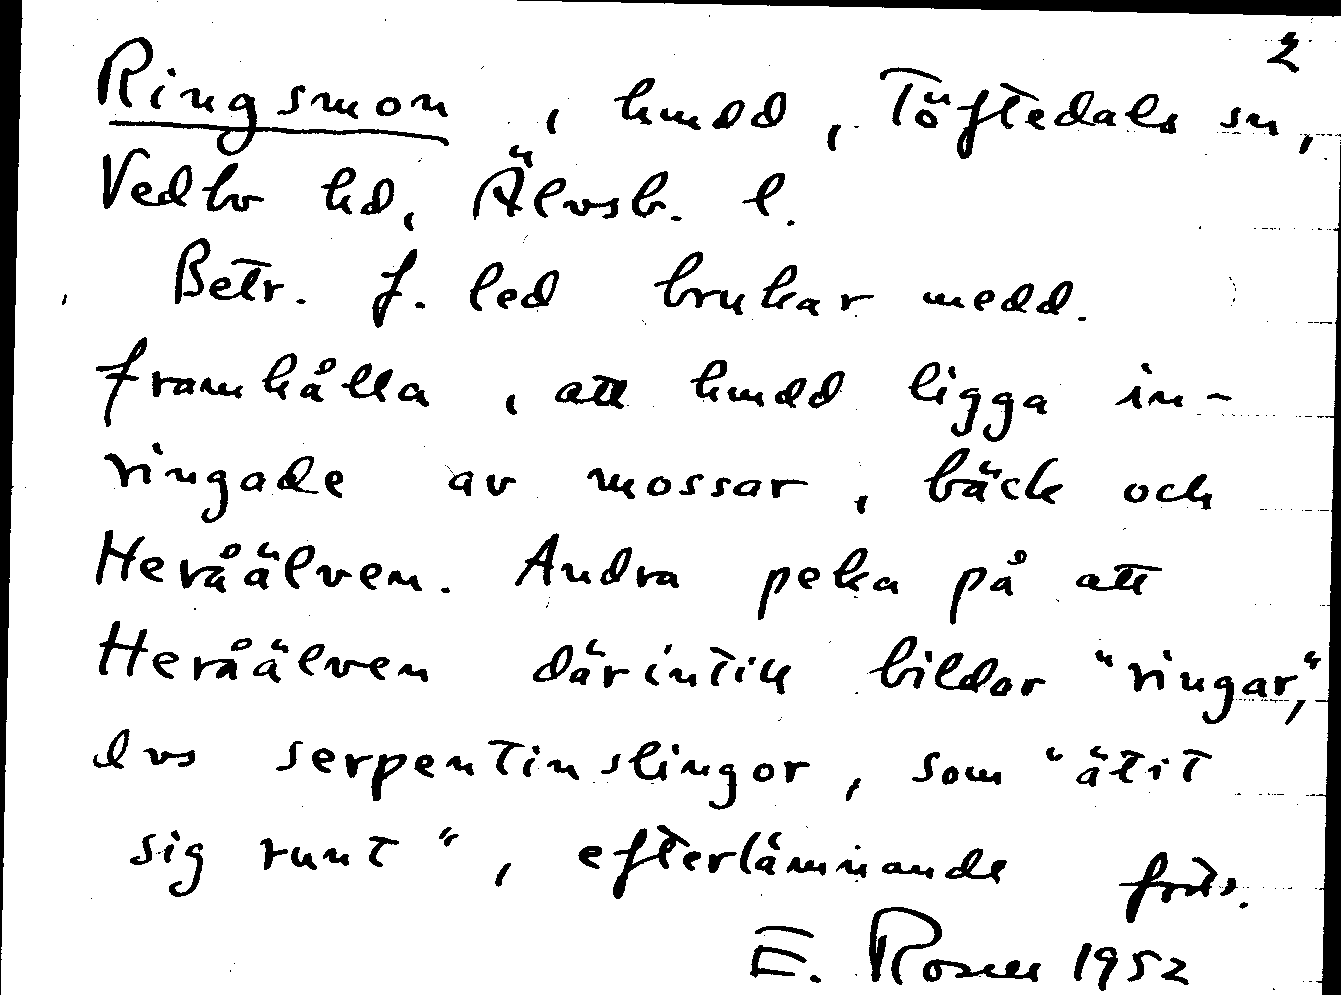 2
Ringsmon, hmdd, Töftedals sn,
Vedbo hd, Älvsb. l.
Betr. f. led brukar medd.
framhålla, att hmdd ligga in-
ringade av mossar, bäck och
Heråälven. Andra peka på att
Heråälven därintill bildar "ringar,"
dvs serpentinslingor, som "ätit
sig runt", efterlämnande
E. Rosell 1952